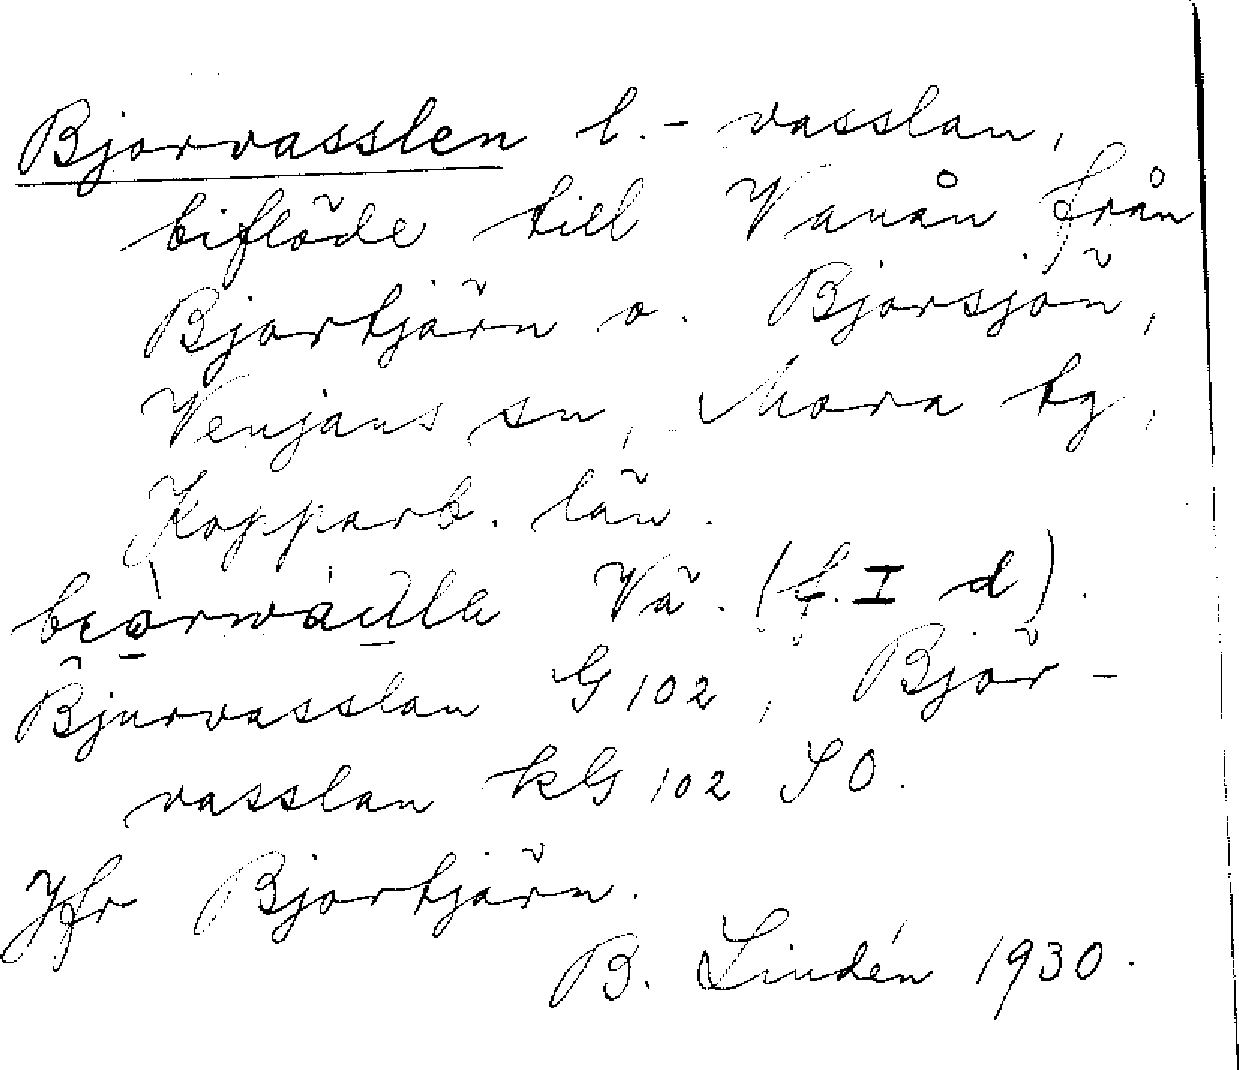 Bjorvasslen l. -vasslan,
biflöde till Vanån från
Bjortjärn o. Bjorsjön,
Venjans sn, Mora tg,
Kopparb. län.
Vä. (f. I d).
Bjurvasslan G 102, Björ-
vasslan kG 102 SO.
Jfr Bjortjärn.
B. Lindén 1930.